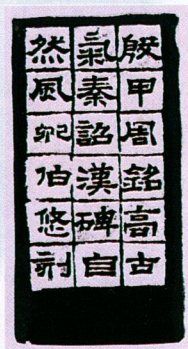 殷甲周銘高古
氣秦詔漢碑自
然風伯悠刻